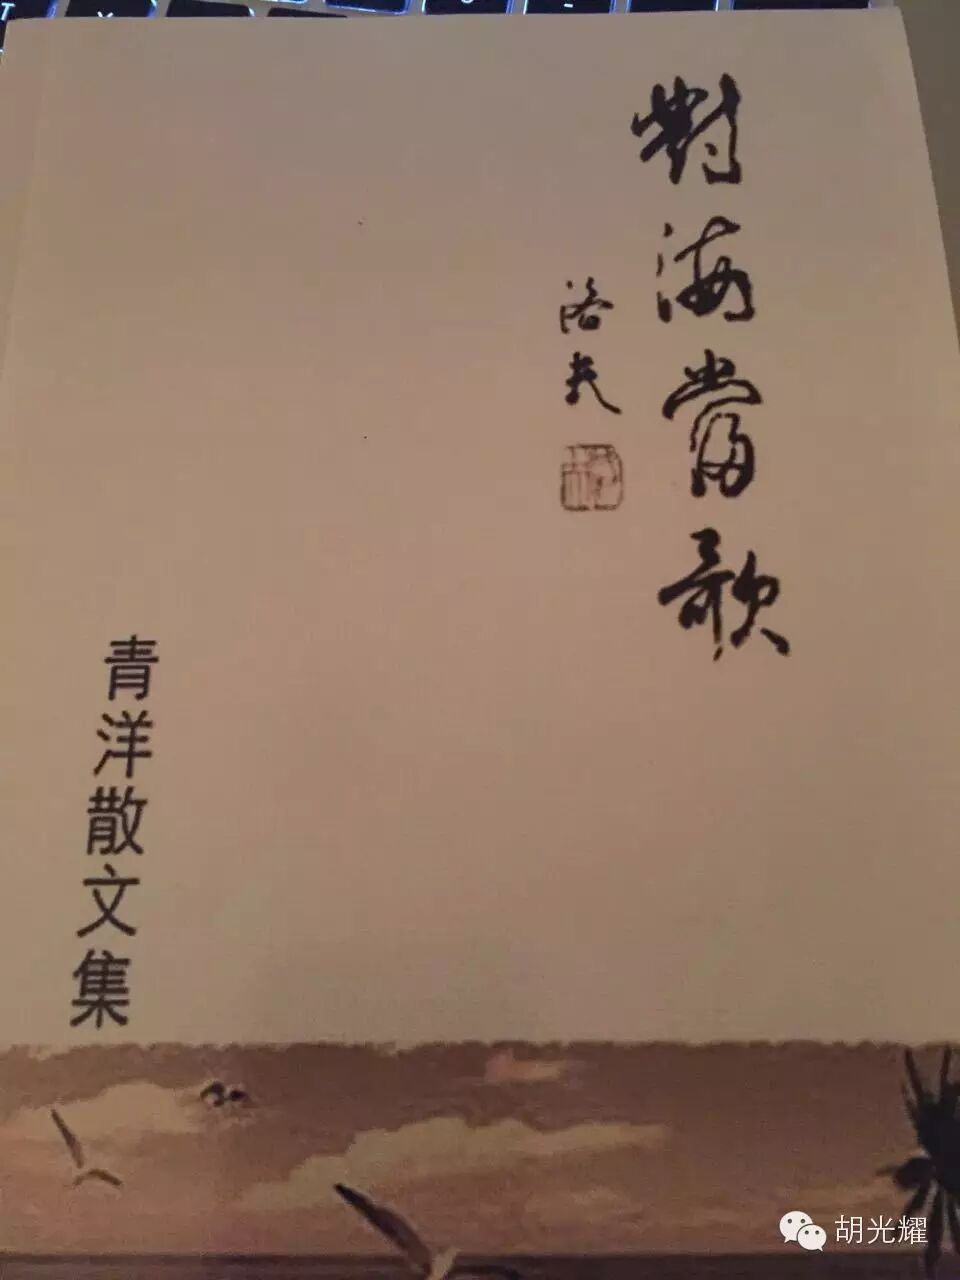 對海當歌
洛夫
青洋散文集
胡光耀